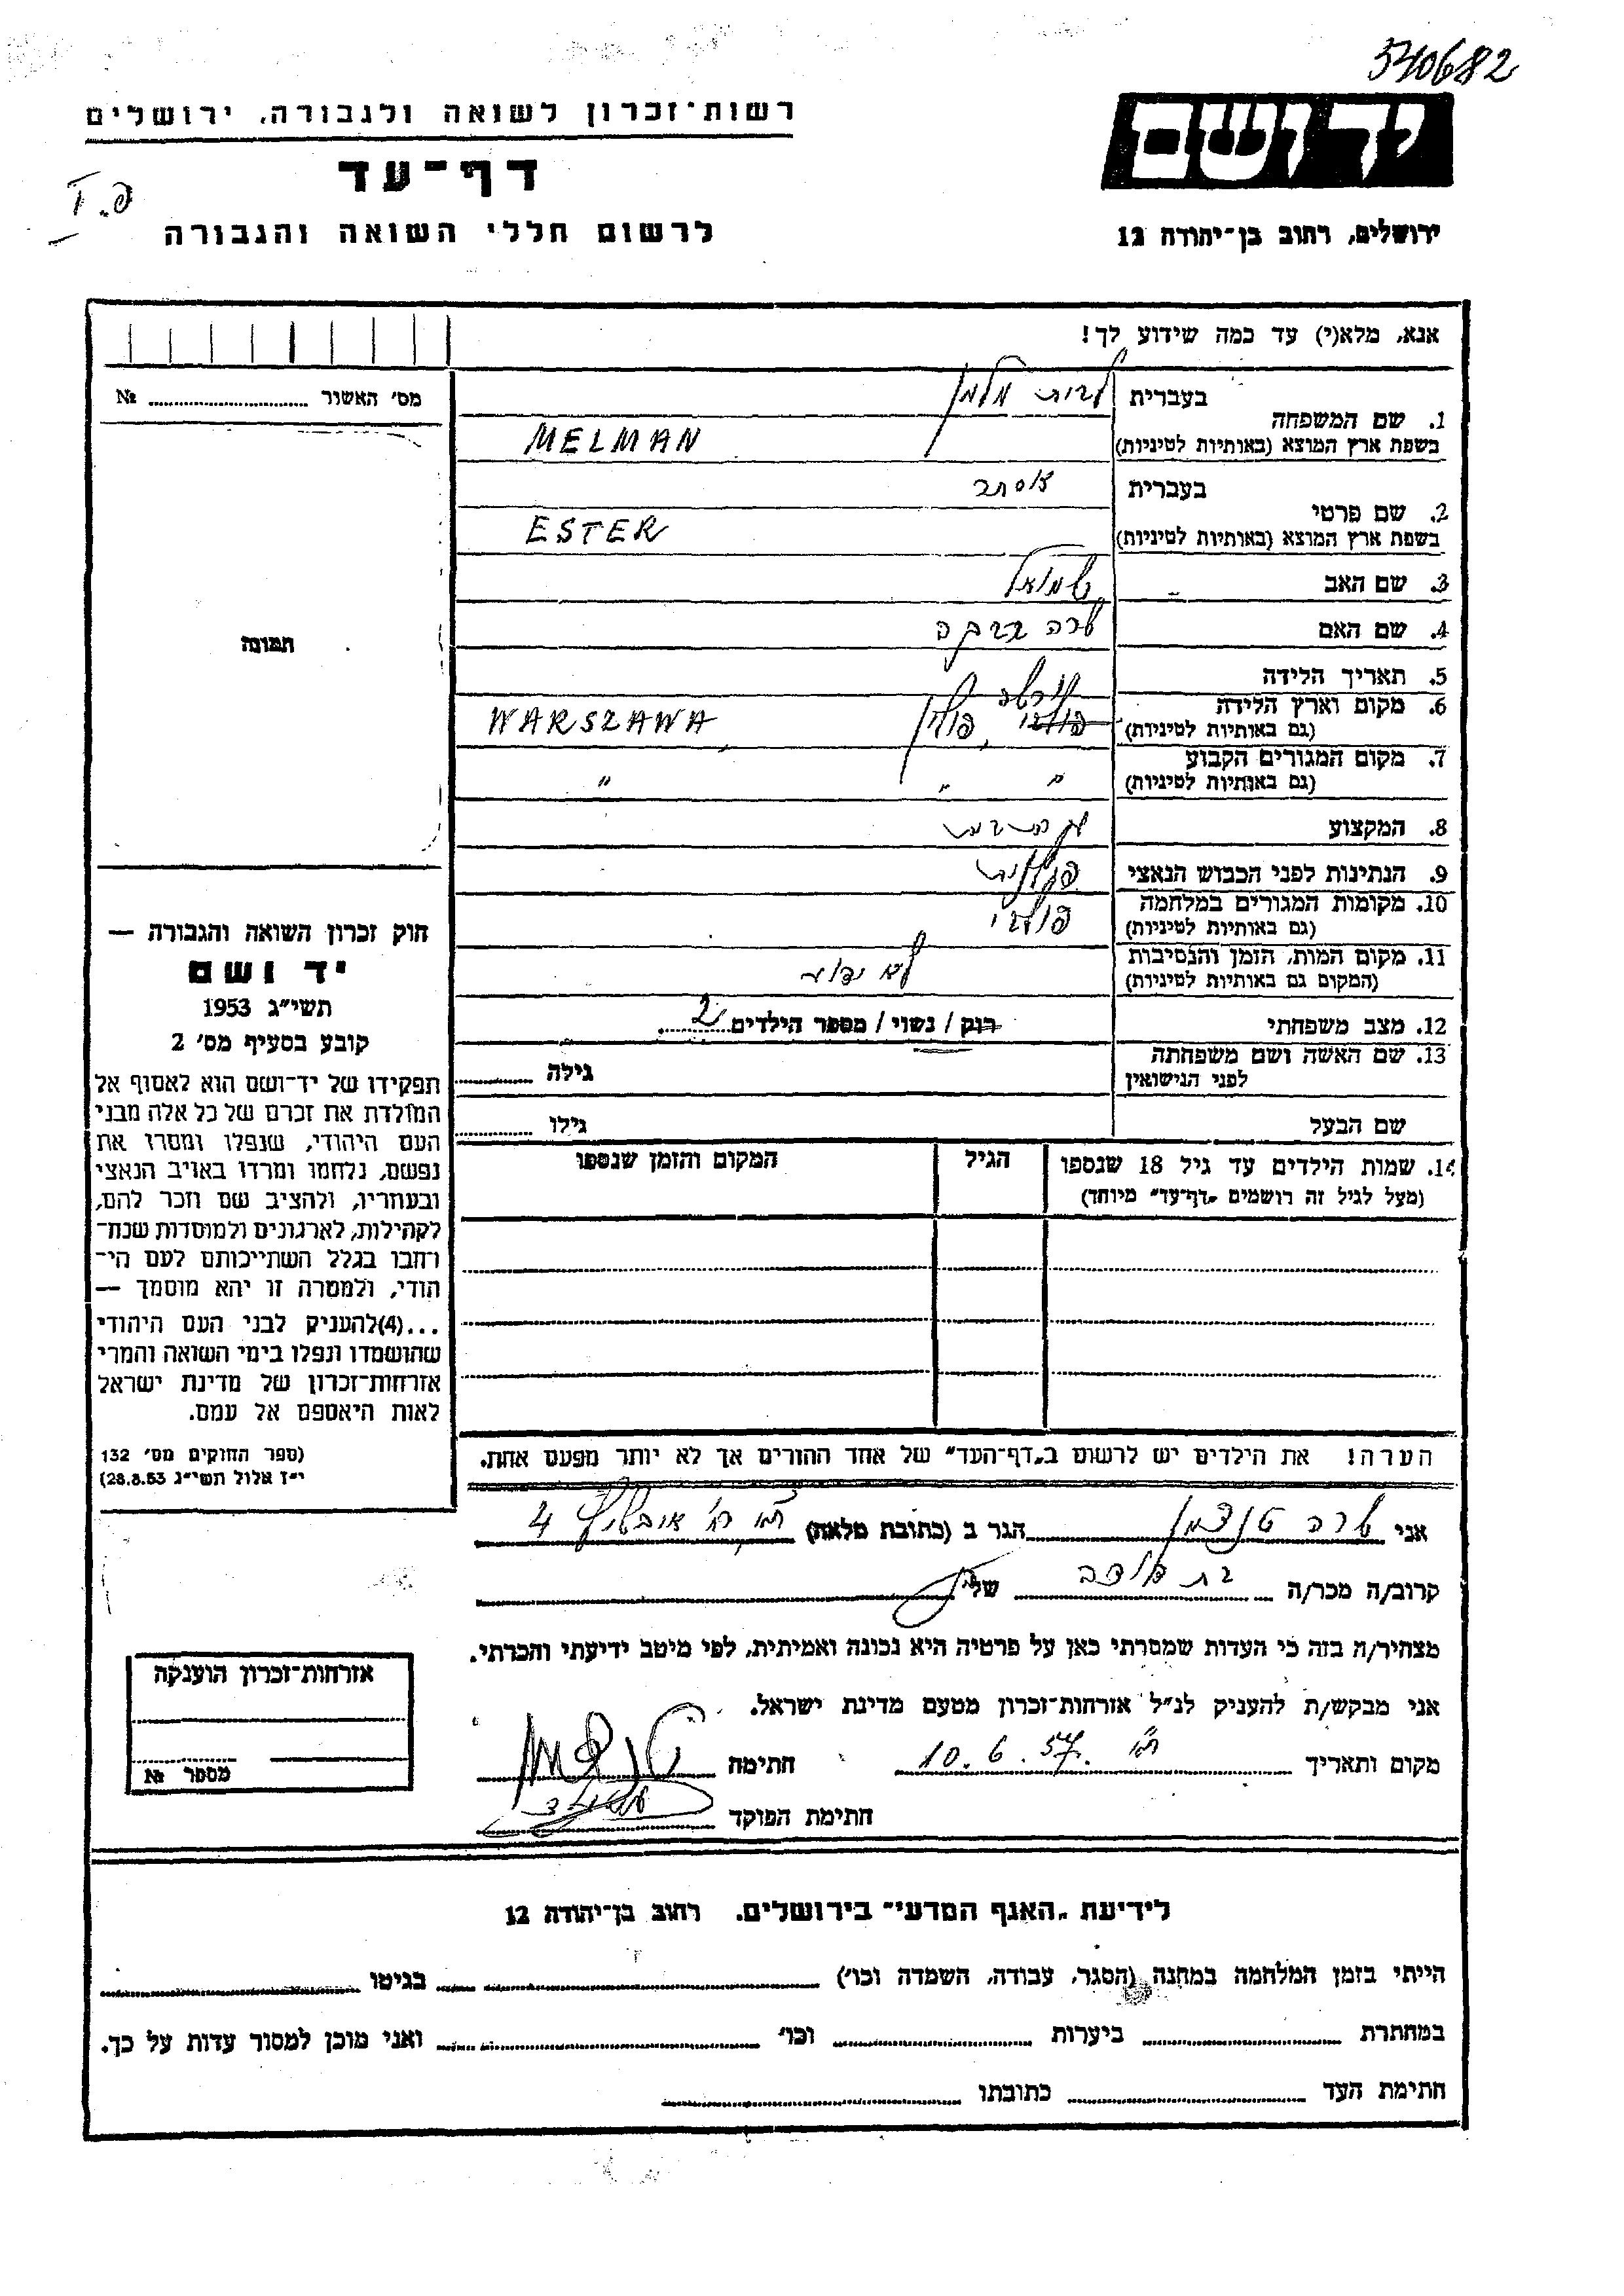 540682
רשות־זכרון לשואה ולגבורה, ירושלים
יד ושם
דף־עד
פ. I
לרשום חללי השואה והגבורה
ירושלים, רחוב בן־יהודה 12
אנא, מלא(י) עד כמה שידוע לך!
מס׳ האשור № 
1. שם המשפחה
בעברית
לבית מלמן
בשפת ארץ המוצא (באותיות לטיניות)
MELMAN
2. שם פרטי
בעברית
אסתר
בשפת ארץ המוצא (באותיות לטיניות)
ESTER
3. שם האב שמואל
4. שם האם שרה רבקה
5. תאריך הלידה
6. מקום וארץ הלידה
(גם באותיות לטיניות)
ורשה פולין WARSZAWA
7. מקום המגורים הקבוע
(גם באותיות לטיניות)
" " "
8. המקצוע עקרת בית
9. הנתינות לפני הכבוש הנאצי פולנית
10. מקומות המגורים במלחמה
(גם באותיות לטיניות)
פולין
11. מקום המות, הזמן והנסיבות
(המקום גם באותיות לטיניות)
לא ידוע
12. מצב משפחתי רוק / נשוי / מספר הילדים 2
13. שם האשה ושם משפחתה
לפני הנישואין
גילה
שם הבעל גילו
14. שמות הילדים עד גיל 18 שנספו הגיל המקום והזמן שנספו
(מעל לגיל זה רושמים „דף־עד״ מיוחד)
הערה! את הילדים יש לרשום ב„דף־העד״ של אחד ההורים אך לא יותר מפעם אחת.
תמונה
חוק זכרון השואה והגבורה —
יד ושם
תשי״ג 1953
קובע בסעיף מס׳ 2
תפקידו של יד־ושם הוא לאסוף אל
המולדת את זכרם של כל אלה מבני
העם היהודי, שנפלו ומסרו את
נפשם, נלחמו ומרדו באויב הנאצי
ובעוזריו, ולהציב שם וזכר להם,
לקהילות, לארגונים ולמוסדות שנח־
רבו בגלל השתייכותם לעם הי־
הודי, ולמטרה זו יהא מוסמך —
...(4)להעניק לבני העם היהודי
שהושמדו ונפלו בימי השואה והמרי
אזרחות־זכרון של מדינת ישראל
לאות היאספם אל עמם.
(ספר החוקים מס׳ 132
י״ז אלול תשי״ג 28.8.53)
אני שרה הגר ב (כתובת מלאה) ת״א רח׳ 4
קרוב/ה מכר/ה בת דודה של
מצהיר/ה בזה כי העדות שמסרתי כאן על פרטיה היא נכונה ואמיתית, לפי מיטב ידיעתי והכרתי.
אני מבקש/ת להעניק לנ״ל אזרחות־זכרון מטעם מדינת ישראל.
מקום ותאריך ת״א 10.6.57 חתימה
חתימת הפוקד
אזרחות־זכרון הוענקה
מספר №
לידיעת „האגף המדעי״ בירושלים. רחוב בן־יהודה 12
הייתי בזמן המלחמה במחנה (הסגר, עבודה, השמדה וכו׳) בגיטו
במחתרת ביערות וכו׳ ואני מוכן למסור עדות על כך.
חתימת העד כתובתו